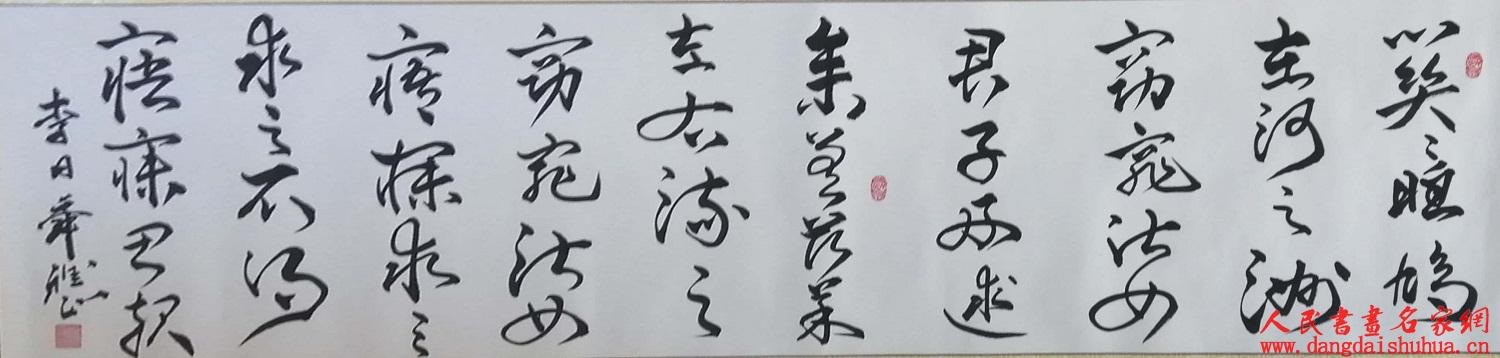 关关雎鸠
在河之洲
窈窕淑女
君子好逑
参差荇菜
左右流之
窈窕淑女
寤寐求之
求之不得
寤寐思服
李日舜雅正
人民書畫名家網
www.dangdaishuhua.cn